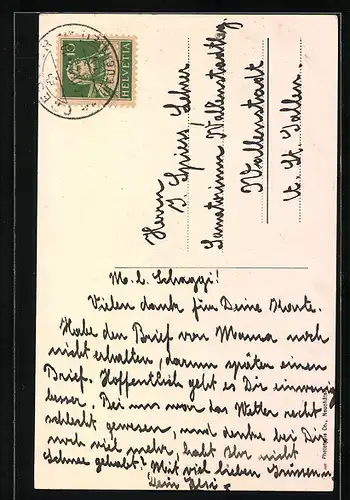 HELVETIA
10
Herrn
J. Spiess Lehrer
Sanatorium Wallenstadtbg.
Wallenstadt
Kt. St. Gallen.
M. l. Schaggi!
Vielen dank für Deine Karte.
Habe den Brief von Mama noch
nicht erhalten, darum später einen
Brief. Hoffentlich geht es Dir
besser. Bei uns war das Wetter recht
schlecht gewesen, und denke bei Dir
noch viel mehr, habt Ihr nicht
Schnee gehabt? Mit viel lieben Grüssen
Dein
Phototypie Co., Neuchâtel